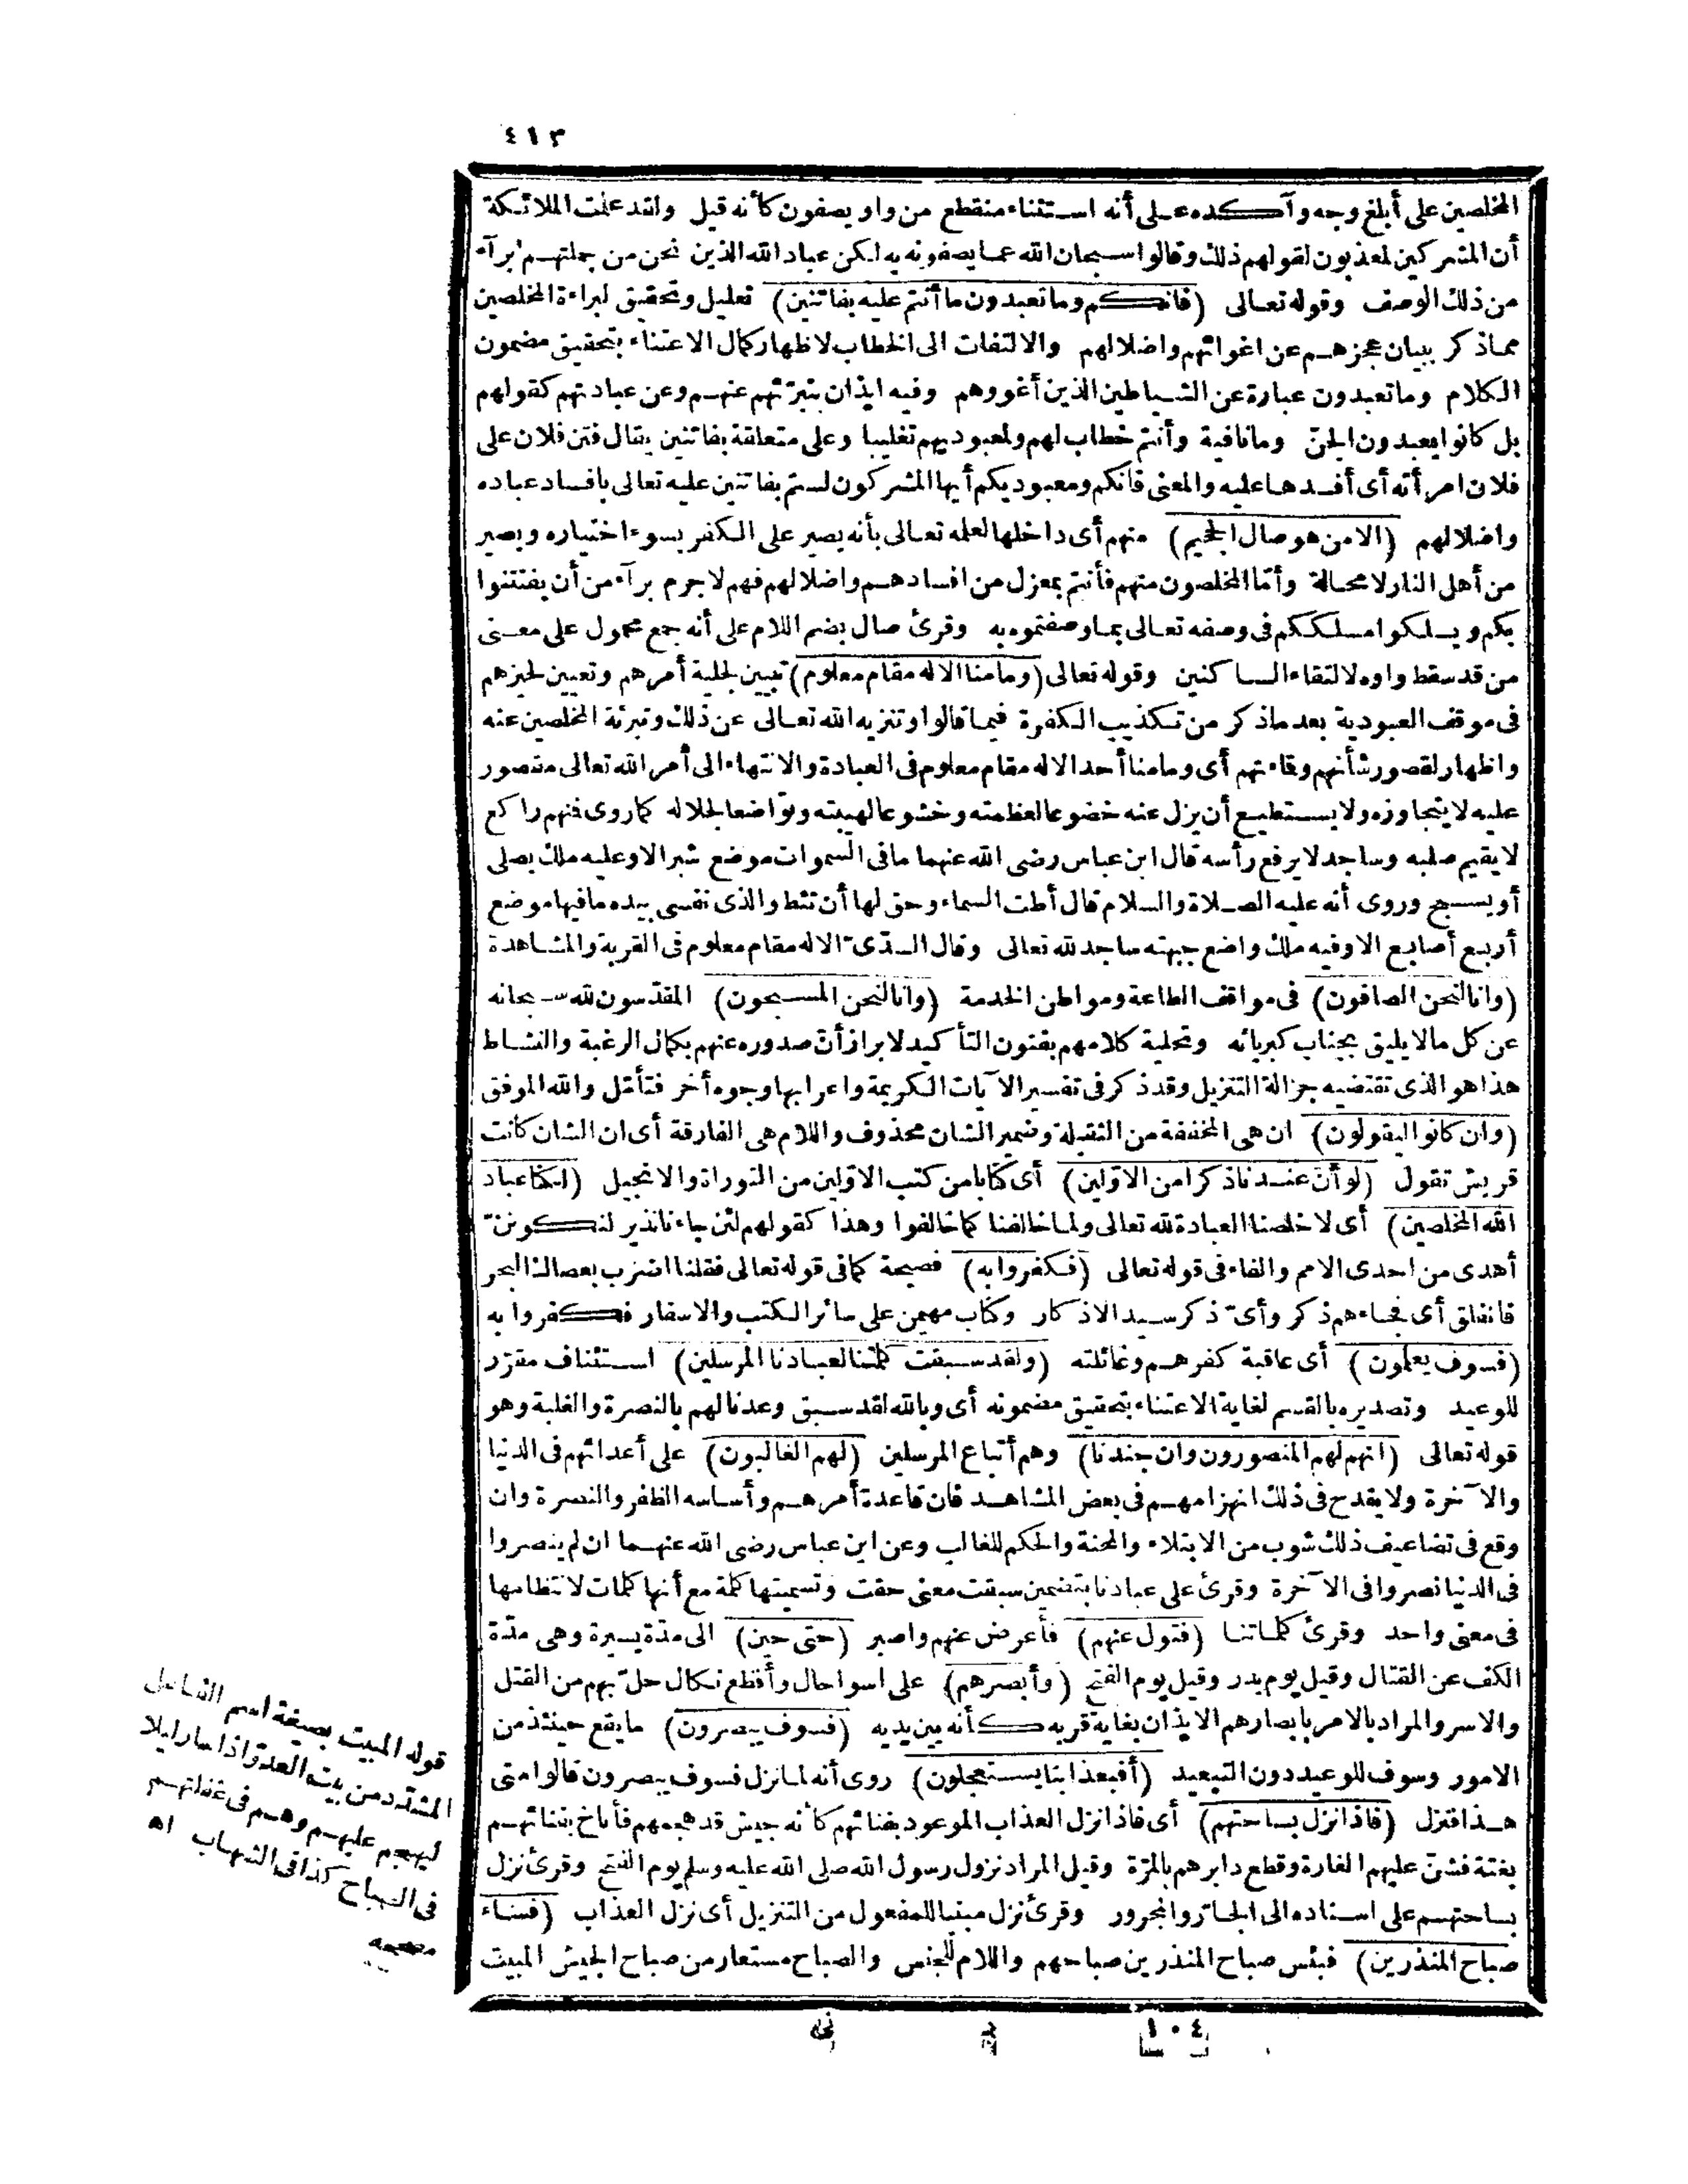 ٤١٣
المخلصين على أبلغ وجه وآكده على أنه استثناء منقطع من واو يصفون كأنه قيل ولقد علمت الملائكة
أن المشركين لمعذبون لقولهم ذلك وقالوا سبحان الله عما يصفونه به لكن عباد الله الذين نحن من جملتهم برآء
من ذلك الوصف وقوله تعالى (فانكم وما تعبدون ما أنتم عليه بفاتنين) تعليل وتحقيق لبراءة المخلصين
مما ذكر ببيان عجزهم عن اغوائهم واضلالهم والالتفات الى الخطاب لاظهار كمال الاعتناء بتحقيق مضمون
الكلام وما تعبدون عبارة عن الشياطين الذين أغووهم وفيه ايذان بتبرّئهم عنهم وعن عبادتهم كقولهم
بل كانوا يعبدون الجنّ وما نافية وأنتم خطاب لهم ولمعبوديهم تغليبا وعلى متعلقة بفاتنين يقال فتن فلان على
فلان امرأته أى أفسدها عليه والمعنى فانكم ومعبوديكم أيها المشركون لستم بفاتنين عليه تعالى بافساد عباده
واضلالهم (الا من هو صال الجحيم) منهم أى داخلها لعلمه تعالى بأنه يصير على الكفر بسوء اختياره ويصير
من أهل النار لا محالة وأمّا المخلصون منهم فأنتم بمعزل من افسادهم واضلالهم فهم لا جرم برآء من أن يفتتنوا
بكم ويسلكوا مسلككم فى وصفه تعالى بما وصفتموه به وقرئ صال بضم اللام على أنه جمع محمول على معنى
من قد سقط واوه لالتقاء الساكنين وقوله تعالى (وما منا الا له مقام معلوم) تبيين لجلية أمرهم وتعيين لحيزهم
فى موقف العبودية بعد ما ذكر من تكذيب الكفرة فيما قالوا وتنزيه الله تعالى عن ذلك وتبرئة المخلصين عنه
واظهار لقصور شأنهم وقماءتهم أى وما منا أحد الا له مقام معلوم فى العبادة والانتهاء الى أمر الله تعالى مقصور
عليه لا يتجاوزه ولا يستطيع أن يزل عنه خضوعا لعظمته وخشوعا لهيبته وتواضعا لجلاله كما روى فمنهم راكع
لا يقيم صلبه وساجد لا يرفع رأسه قال ابن عباس رضى الله عنهما ما فى السموات موضع شبر الا وعليه ملك يصلى
أو يسبح وروى أنه عليه الصلاة والسلام قال أطت السماء وحق لها أن تئط والذى نفسى بيده ما فيها موضع
أربع أصابع الا وفيه ملك واضع جبهته ساجد لله تعالى وقال السدّىّ الا له مقام معلوم فى القربة والمشاهدة
(وانا لنحن الصافون) فى مواقف الطاعة ومواطن الخدمة (وانا لنحن المسبحون) المقدّسون لله سبحانه
عن كل ما لا يليق بجناب كبريائه وتحلية كلامهم بفنون التأكيد لابراز أنّ صدوره عنهم بكمال الرغبة والنشاط
هذا هو الذى تقتضيه جزالة التنزيل وقد ذكر فى تفسير الآيات الكريمة واعرابها وجوه أخر فتأمّل والله الموفق
(وان كانوا ليقولون) ان هى المخففة من الثقيلة وضمير الشان محذوف واللام هى الفارقة أى ان الشان كانت
قريش تقول (لو أنّ عندنا ذكرا من الاوّلين) أى كتابا من كتب الاوّلين من التوراة والانجيل (لكنّا عباد
الله المخلصين) أى لاخلصنا العبادة لله تعالى ولما خالفنا كما خالفوا وهذا كقولهم لئن جاءنا نذير لنكوننّ
أهدى من احدى الامم والفاء فى قوله تعالى (فكفروا به) فصيحة كما فى قوله تعالى فقلنا اضرب بعصاك البحر
فانفلق أى فجاءهم ذكر وأىّ ذكر سيد الاذكار وكتاب مهيمن على سائر الكتب والاسفار فكفروا به
(فسوف يعلمون) أى عاقبة كفرهم وغائلته (ولقد سبقت كلمتنا لعبادنا المرسلين) استئناف مقرّر
للوعيد وتصديره بالقسم لغاية الاعتناء بتحقيق مضمونه أى وبالله لقد سبق وعدنا لهم بالنصرة والغلبة وهو
قوله تعالى (انهم لهم المنصورون وان جندنا) وهم أتباع المرسلين (لهم الغالبون) على أعدائهم فى الدنيا
والآخرة ولا يقدح فى ذلك انهزامهم فى بعض المشاهد فان قاعدة أمرهم وأساسه الظفر والنصرة وان
وقع فى تضاعيف ذلك شوب من الابتلاء والمحنة والحكم للغالب وعن ابن عباس رضى الله عنهما ان لم ينصروا
فى الدنيا نصروا فى الآخرة وقرئ على عبادنا بتضمين سبقت معنى حقت وتسميتها كلمة مع أنها كلمات لانتظامها
فى معنى واحد وقرئ كلماتنا (فتول عنهم) فأعرض عنهم واصبر (حتى حين) الى مدّة يسيرة وهى مدّة
الكف عن القتال وقيل يوم بدر وقيل يوم الفتح (وأبصرهم) على اسوا حال وأفظع نكال حلّ بهم من القتل
والاسر والمراد بالامر بابصارهم الايذان بغاية قربه كأنه بين يديه (فسوف يبصرون) ما يقع حينئذ من
الامور وسوف للوعيد دون التبعيد (أفبعذابنا يستعجلون) روى أنه لما نزل فسوف يبصرون قالوا متى
هذا فنزل (فاذا نزل بساحتهم) أى فاذا نزل العذاب الموعود بفنائهم كأنه جيش قد هجمهم فأناخ بفنائهم
بغتة فشنّ عليهم الغارة وقطع دابرهم بالمرّة وقيل المراد نزول رسول الله صلى الله عليه وسلم يوم الفتح وقرئ نزل
بساحتهم على اسناده الى الجارّ والمجرور وقرئ نزل مبنيا للمفعول من التنزيل أى نزل العذاب (فساء
صباح المنذرين) فبئس صباح المنذرين صباحهم واللام للجنس والصباح مستعار من صباح الجيش المبيت
قوله المبيت بصيغة اسم الفاعل
المشدّد من بيت العدوّ اذا سار ليلا
ليهجم عليهم وهم فى غفلتهم
فى الصباح كذا فى الشهاب اه
مصححه
١٠٤